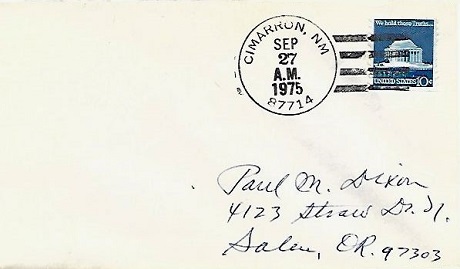 CIMARRON, NM
SEP
27
A.M.
1975
87714
We hold these Truths...
UNITED STATES 10c
Paul M. Dixon
4123 Straw Dr. N.
Salem, OR. 97303